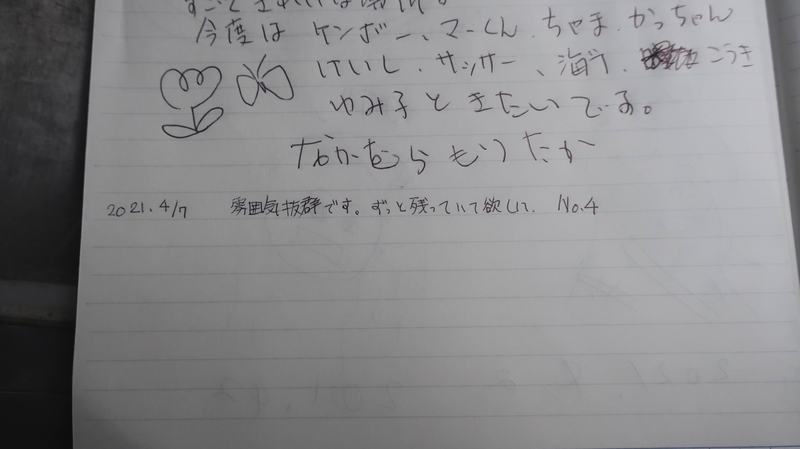 すごく きれいな場所。
今度は ケンボー、マーくん、ちゃま、かっちゃん
けいし、サッサー、海斗、こうき
ゆみ子と きたいでする。
なかむら もりたか
2021.4/7 雰囲気抜群です。ずっと残っていて欲しい。 No.4